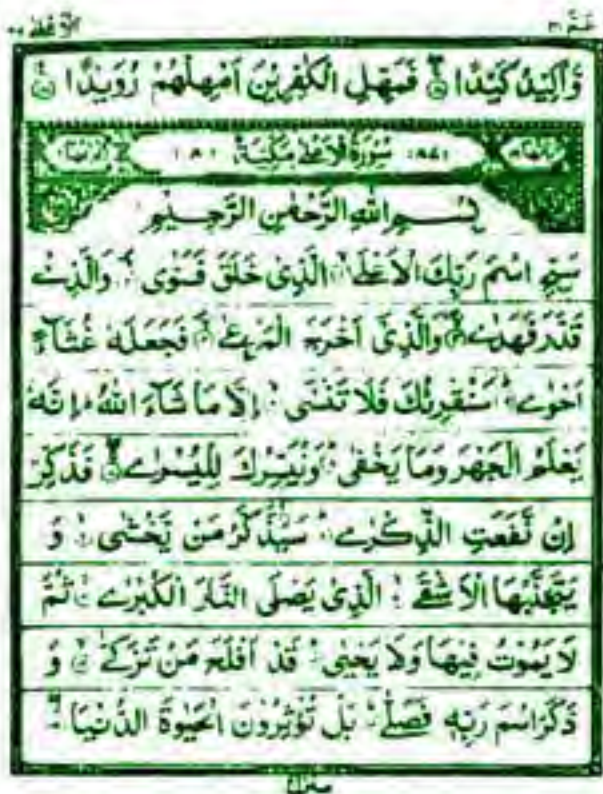 عَمَّ ٣٠
الاعلى ٨٧
وَّاَكِيْدُ كَيْدًا ۚ فَمَهِّلِ الْكٰفِرِيْنَ اَمْهِلْهُمْ رُوَيْدًا
(٨٧) سُوْرَةُ الْاَعْلٰى مَكِّيَّةٌ (٨)
بِسْمِ اللهِ الرَّحْمٰنِ الرَّحِيْمِ
سَبِّحِ اسْمَ رَبِّكَ الْاَعْلَى الَّذِیْ خَلَقَ فَسَوّٰى وَالَّذِیْ
قَدَّرَ فَهَدٰى وَالَّذِیْۤ اَخْرَجَ الْمَرْعٰى فَجَعَلَهٗ غُثَآءً
اَحْوٰى سَنُقْرِئُكَ فَلَا تَنْسٰۤى اِلَّا مَا شَآءَ اللهُ اِنَّهٗ
يَعْلَمُ الْجَهْرَ وَمَا يَخْفٰى وَنُيَسِّرُكَ لِلْيُسْرٰى فَذَكِّرْ
اِنْ نَّفَعَتِ الذِّكْرٰى سَيَذَّكَّرُ مَنْ يَّخْشٰى وَ
يَتَجَنَّبُهَا الْاَشْقَى الَّذِیْ يَصْلَى النَّارَ الْكُبْرٰى ثُمَّ
لَا يَمُوْتُ فِيْهَا وَلَا يَحْيٰى قَدْ اَفْلَحَ مَنْ تَزَكّٰى وَ
ذَكَرَ اسْمَ رَبِّهٖ فَصَلّٰى بَلْ تُؤْثِرُوْنَ الْحَيٰوةَ الدُّنْيَا